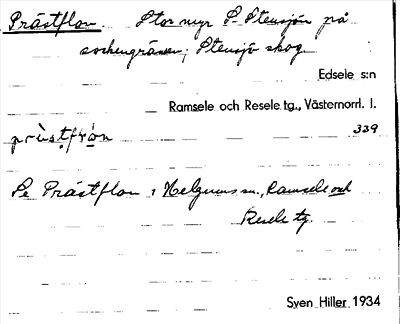 Prästflon   Stor myr S. Stensjön på
sockengränsen; Stensjö skog
Edsele s:n
Ramsele och Resele tg., Västernorrl. l.
339
prùs̩tfrɔn
Se Prästflon i Helgums sn., Ramsele och
Resele tg.
Sven Hiller 1934